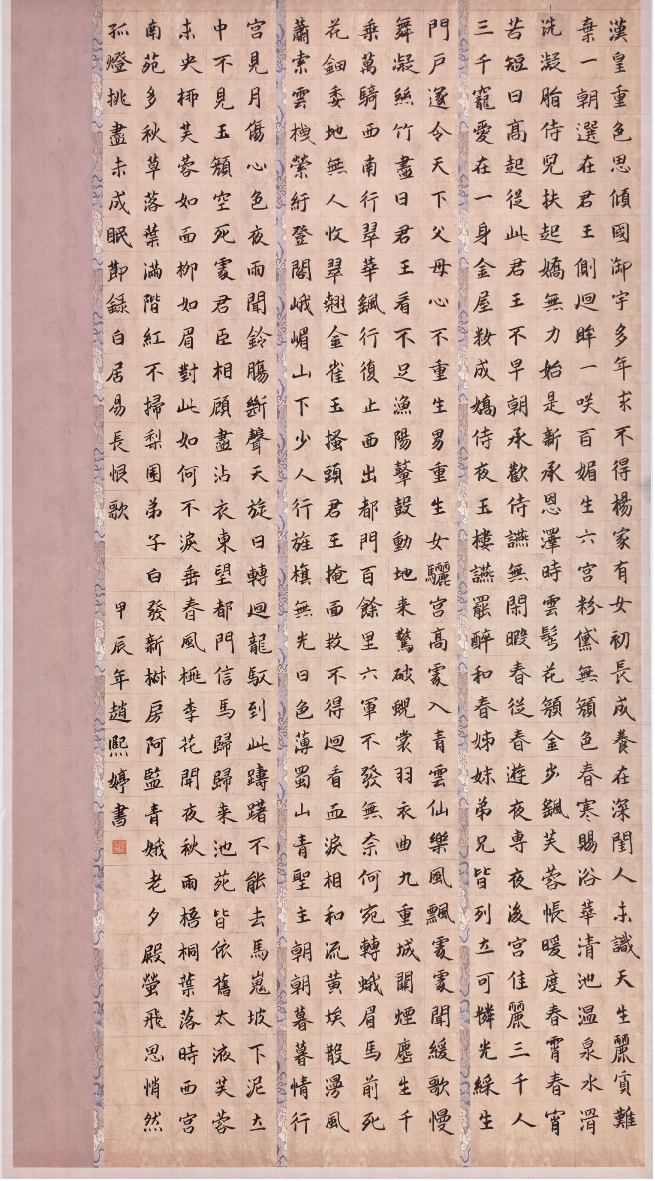 漢皇重色思傾國御宇多年求不得楊家有女初長成養在深閨人未識天生麗質難
棄一朝選在君王側迴眸一咲百媚生六宮粉黛無顏色春寒賜浴華清池温泉水滑
洗凝脂侍兒扶起嬌無力始是新承恩澤時雲鬢花顏金步颻芙蓉帳暖度春霄春宵
苦短日高起從此君王不早朝承歡侍讌無閑暇春從春遊夜專夜後宮佳麗三千人
三千寵愛在一身金屋粧成嬌侍夜玉樓讌罷醉和春姊妹弟兄皆列土可憐光綵生
門戶遂令天下父母心不重生男重生女驪宮高處入青雲仙樂風飄處處聞緩歌慢
舞凝絲竹盡日君王看不足漁陽鼙鼓動地来驚破霓裳羽衣曲九重城闕煙塵生千
乘萬騎西南行翠華颻行復止西出都門百餘里六軍不發無奈何宛轉蛾眉馬前死
花鈿委地無人收翠翹金雀玉搔頭君王掩面救不得迴看血淚相和流黃埃散漫風
蕭索雲棧縈紆登閣峨嵋山下少人行旌旗無光日色薄蜀山青聖主朝朝暮暮情行
宮見月傷心色夜雨聞鈴腸斷聲天旋日轉迴龍馭到此躊躇不能去馬嵬坡下泥土
中不見玉顏空死處君臣相顧盡沾衣東望都門信馬歸歸来池苑皆依舊太液芙蓉
未央柳芙蓉如面柳如眉對此如何不淚垂春風桃李花開夜秋雨梧桐葉落時西宮
南苑多秋草落葉滿階紅不掃梨園弟子白發新椒房阿監青娥老夕殿螢飛思悄然
孤燈挑盡未成眠節錄白居易長恨歌 甲辰年趙熙婷書